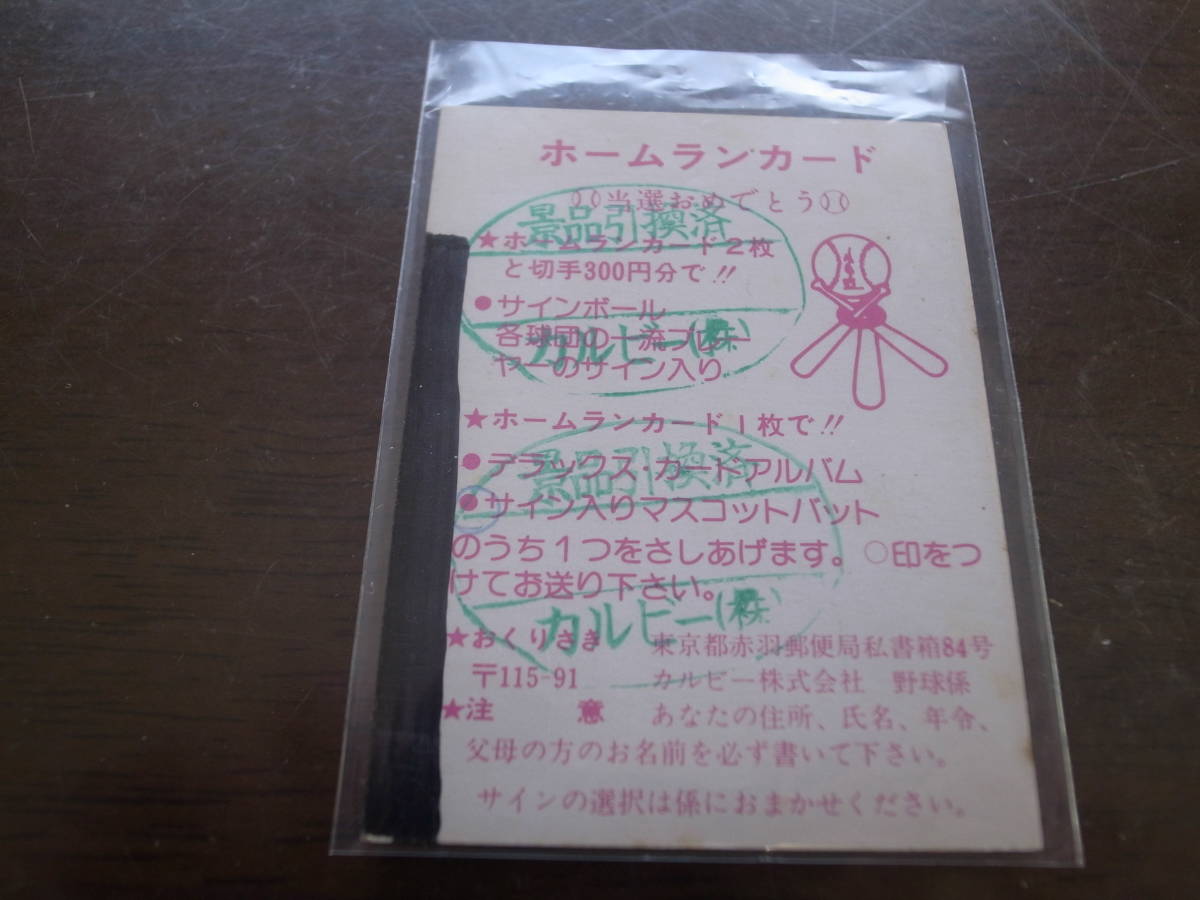 ホームランカード
当選おめでとう
景品引換済
★ホームランカード2枚
と切手300円分で!!
●サインボール
各球団の一流プレー
カルビー(株)
ヤーのサイン入り
★ホームランカード1枚で!!
景品引換済
●デラックス・カードアルバム
●サイン入りマスコットバット
のうち1つをさしあげます。○印をつ
けてお送り下さい。
カルビー(株)
★おくりさき 東京都赤羽郵便局私書箱84号
〒115-91 カルビー株式会社 野球係
★注 意 あなたの住所、氏名、年令、
父母の方のお名前を必ず書いて下さい。
サインの選択は係におまかせください。